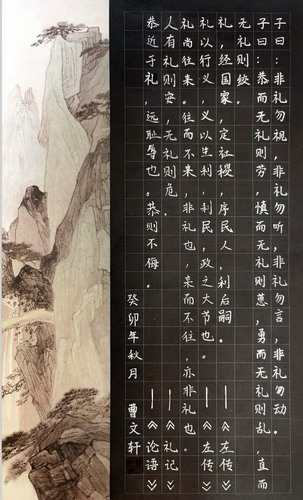 子曰：非礼勿视，非礼勿听，非礼勿言，非礼勿动。
子曰：恭而无礼则劳，慎而无礼则葸，勇而无礼则乱，直而
无礼则绞。
礼，经国家，定社稷，序民人，利后嗣。——《左传》
礼以行义，义以生利，利民，政之大节也。——《左传》
礼尚往来。往而不来，非礼也，来而不往，亦非礼也。
人有礼则安，无礼则危。——《礼记》
恭近于礼，远耻辱也。恭则不侮。——《论语》
癸卯年秋月 曹文轩